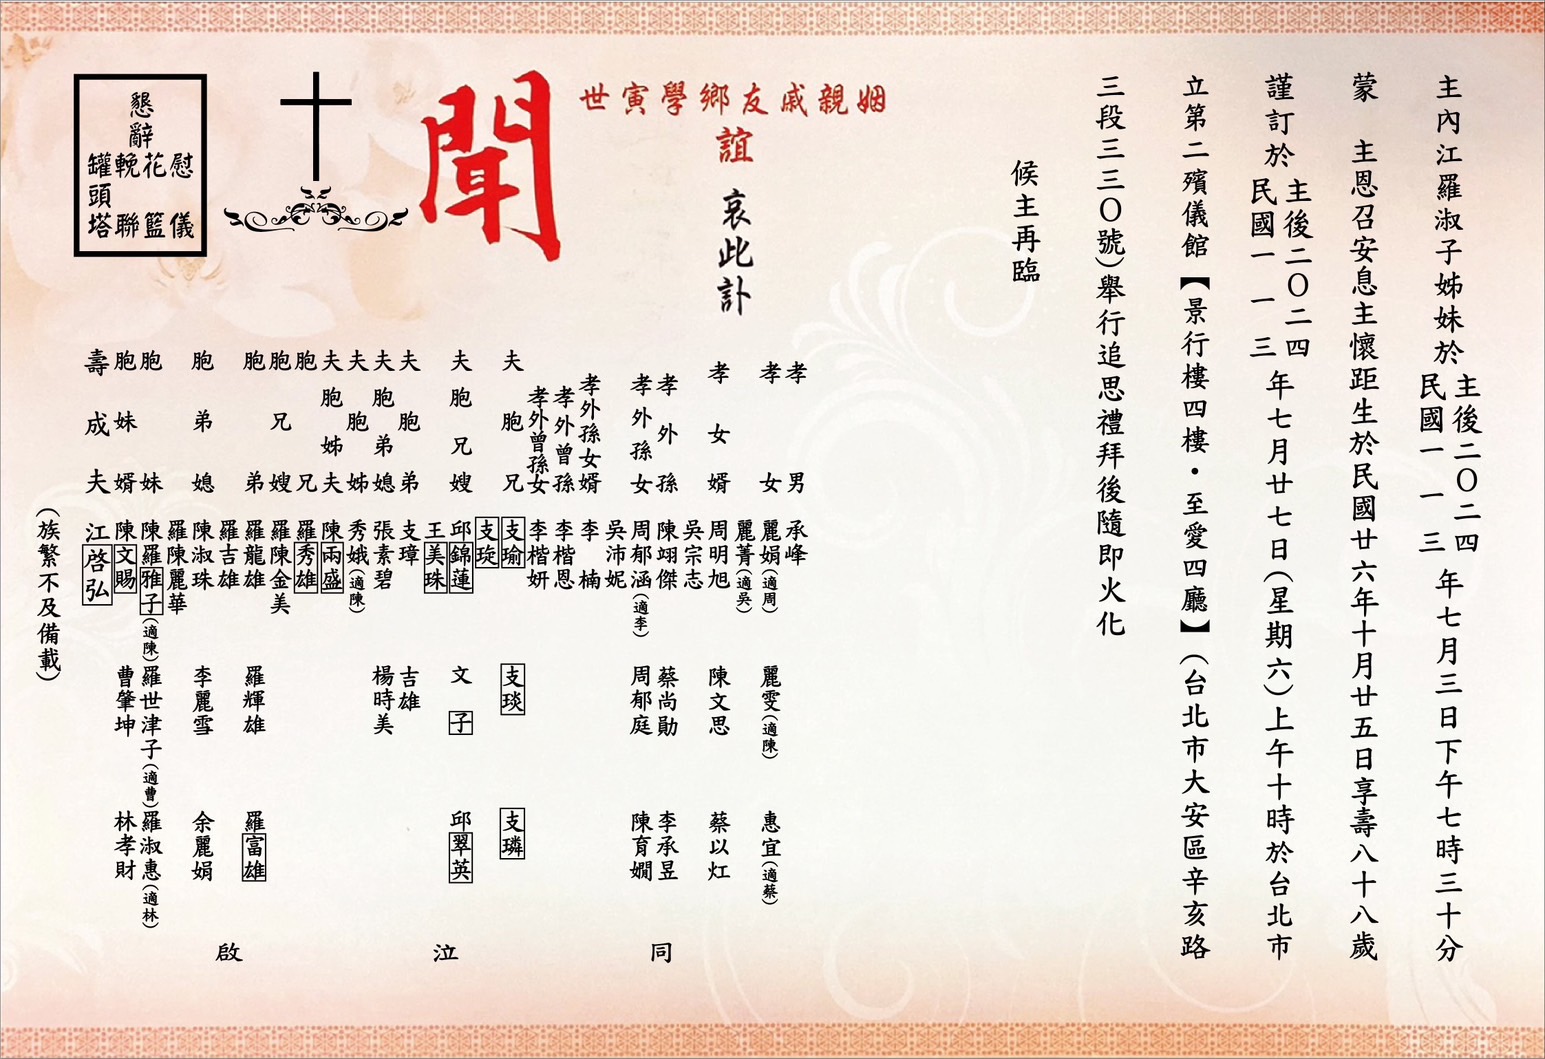 主內江羅淑子姊妹於主後二〇二四民國一一三年七月三日下午七時三十分
蒙　主恩召安息主懷距生於民國廿六年十月廿五日享壽八十八歲
謹訂於主後二〇二四民國一一三年七月廿七日(星期六)上午十時於台北市
立第二殯儀館【景行樓四樓・至愛四廳】(台北市大安區辛亥路
三段三三〇號)舉行追思禮拜後隨即火化
候主再臨
姻親戚友鄉學寅世
誼
哀此訃
聞
懇辭
慰儀
花籃
輓聯
罐頭塔
孝男 承峰
孝女 麗娟(適周) 麗雯(適陳) 惠宜(適蔡)
麗菁(適吳)
孝女婿 周明旭 陳文思 蔡以灴
吳宗志
孝外孫 陳翊傑 蔡尚勛 李承昱
孝外孫女 周郁涵(適李) 周郁庭 陳育嫺
吳沛妮
孝外孫女婿 李楠
孝外曾孫 李楷恩
孝外曾孫女 李楷妍
夫胞兄 支瑜 支琰 支璘
支琁
夫胞兄嫂 邱錦蓮 文子 邱翠英
王美珠
夫胞弟 支璋 吉雄
夫胞弟媳 張素碧 楊時美
夫胞姊 秀娥(適陳)
夫胞姊夫 陳兩盛
胞兄 羅秀雄
胞兄嫂 羅陳金美
胞弟 羅龍雄 羅輝雄 羅富雄
羅吉雄
胞弟媳 陳淑珠 李麗雪 余麗娟
羅陳麗華
胞妹 陳羅雅子(適陳) 羅世津子(適曹) 羅淑惠(適林)
胞妹婿 陳文賜 曹肇坤 林孝財
壽成夫 江啓弘
(族繁不及備載)
同泣啟